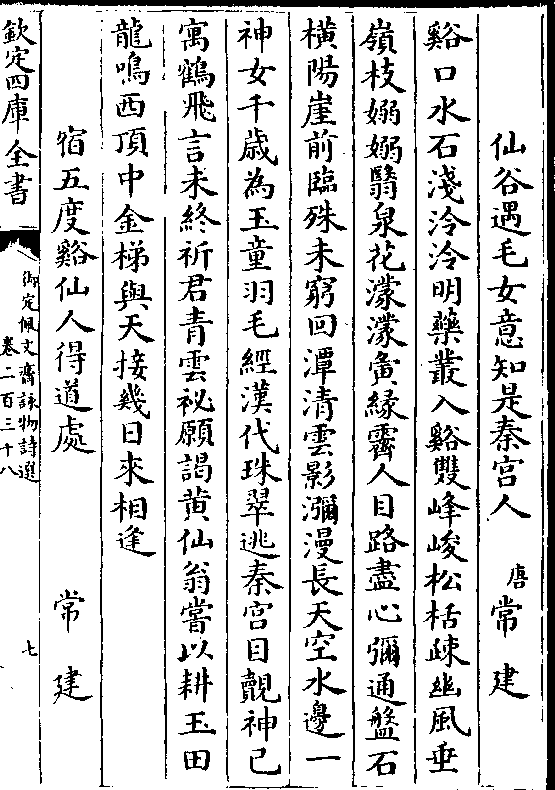 仙谷遇毛女意知是秦宫人　唐　常建
谿口水石淺泠泠明藥叢入谿雙峰峻松栝疎幽風垂
嶺枝嫋嫋翳泉花濛濛夤縁霽人目路盡心彌通盤石
横陽崖前臨殊未窮回潭清雲影瀰漫長天空水邊一
神女千歳為玉童羽毛經漢代珠翠逃秦宫目覿神已
寓鶴飛言未終祈君青雲祕願謁黄仙翁嘗以耕玉田
龍鳴西頂中金梯與天接幾日來相逢
宿五度谿仙人得道處　常建
欽定四庫全書
御定佩文齋詠物詩選
卷二百三十八
七